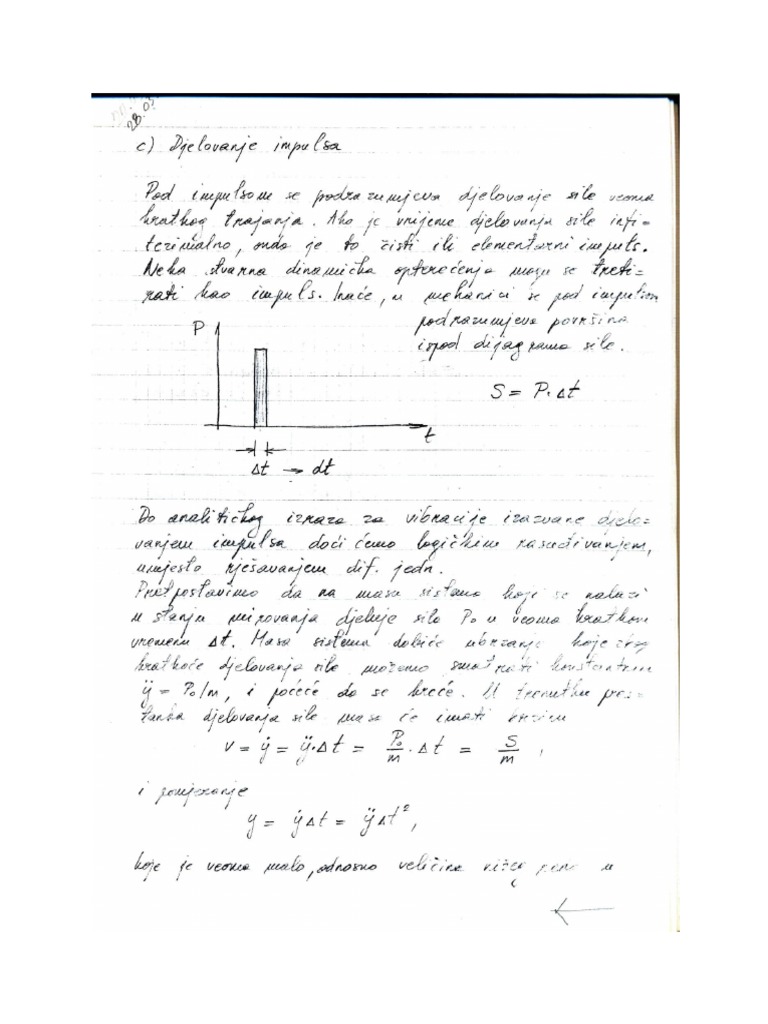 28.03
c) Djelovanje impulsa
Pod impulsom se podrazumjeva djelovanje sile veoma
kratkog trajanja. Ako je vrijeme djelovanja sile infi-
tezimalno, onda je to čisti ili elementarni impuls.
Neka stvarna dinamička opterećenja mogu se treti-
rati kao impuls. Inače, u mehanici se pod impulsom
podrazumjeva površina
ispod dijagrama sile.
P
S = P·Δt
t
Δt → dt
Do analitičkog izraza za vibracije izazvane djelo-
vanjem impulsa doći ćemo logičkim rasuđivanjem,
umjesto rješavanjem dif. jedn.
Pretpostavimo da na masu sistema koji se nalazi
u stanju mirovanja djeluje sila P₀ u veoma kratkom
vremenu Δt. Masa sistema dobiće ubrzanje koje zbog
kratkoće djelovanja sile možemo smatrati konstantnim
ÿ = P₀/m, i počeće da se kreće. U trenutku pres-
tanka djelovanja sile masa će imati brzinu
v = ẏ = ÿ·Δt = P₀/m · Δt = S/m ,
i pomjeranje
y = ẏΔt = ÿΔt²,
koje je veoma malo, odnosno veličina nižeg reda u